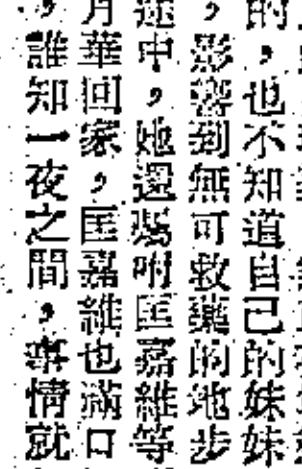 的，也不知道自己的妹妹
，影響到無可救藥的地步
途中，她還囑咐匡嘉維等
月華回家，匡嘉維也滿口
，誰知一夜之間，事情就